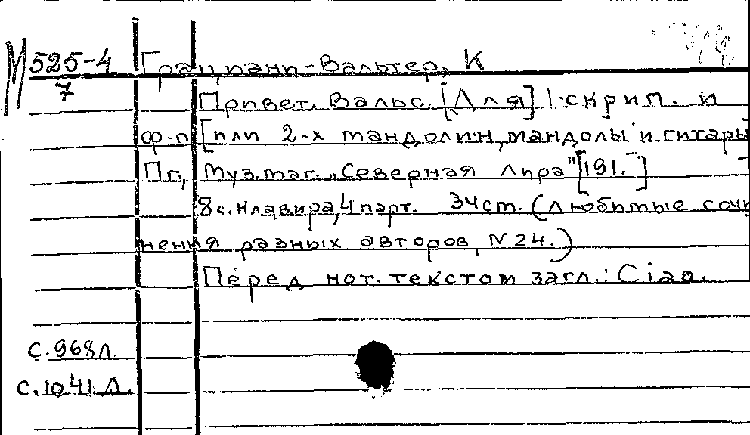 М 525-4
7
Грациани-Вальтер, К
Привет. Вальс. [Для] 1 скрип. и
ф-п [или 2-х мандолин, мандолы и гитары]
Пг., Муз. маг. „Северная Лира" [191. ]
8 с. клавира, 4 парт. 34 ст. (Любимые сочи
нения разных авторов, N 24.)
Перед нот. текстом загл.: Ciao.
С. 968 Л.
С. 1041 Л.